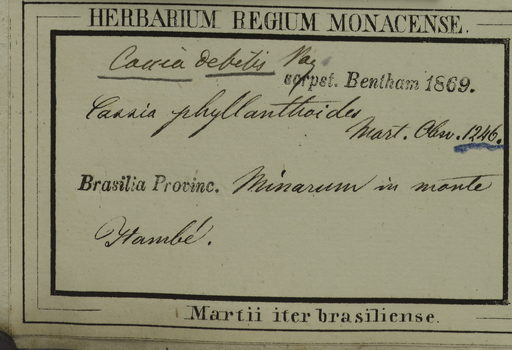 HERBARIUM REGIUM MONACENSE.
Cassia debilis Vog
scrpst. Bentham 1869.
Cassia phyllanthoides
Mart. Obs. 1246.
Brasilia Provinc. Minarum in monte
Itambé.
Martii iter brasiliense.